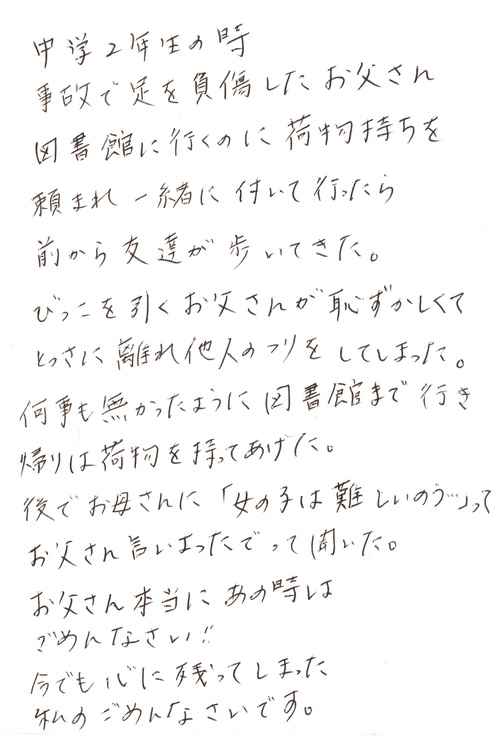 中学2年生の時
事故で足を負傷したお父さん
図書館に行くのに荷物持ちを
頼まれ一緒に付いて行ったら
前から友達が歩いてきた。
びっこを引くお父さんが恥ずかしくて
とっさに離れ他人のフリをしてしまった。
何事も無かったように図書館まで行き
帰りは荷物を持ってあげた。
後でお母さんに「女の子は難しいのう…」って
お父さん言いよったでって聞いた。
お父さん本当にあの時は
ごめんなさい!!
今でも心に残ってしまった
私のごめんなさいです。